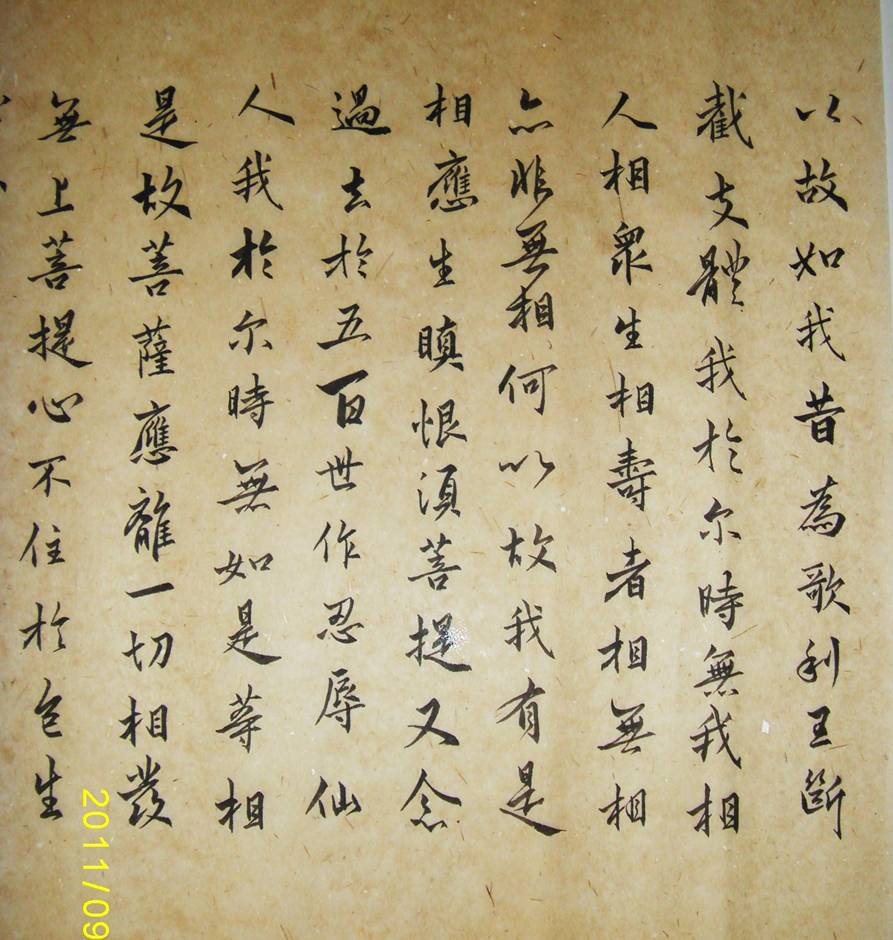 以故如我昔為歌利王斷
截支體我於尔時無我相
人相眾生相壽者相無相
亦非無相何以故我有是
相應生瞋恨湏菩提又念
過去於五百世作忍辱仙
人我於尔時無如是等相
是故菩薩應離一切相發
無上菩提心不住於色生
2011/09